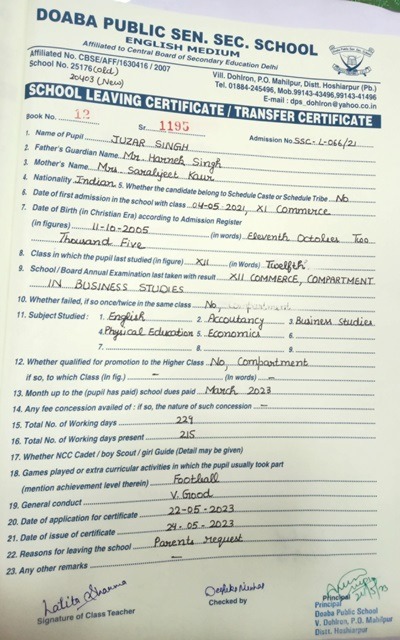 DOABA PUBLIC SEN. SEC. SCHOOL
ENGLISH MEDIUM
Affiliated to Central Board of Secondary Education Delhi
Affiliated No. CBSE/AFF/1630416 / 2007
School No. 25176 (old)
20403 (New)
Vill. Dohlron, P.O. Mahilpur, Distt. Hoshiarpur (Pb.)
Tel. 01884-245496, Mob.99143-43496,99143-41496
E-mail : dps_dohlron@yahoo.co.in
SCHOOL LEAVING CERTIFICATE / TRANSFER CERTIFICATE
Book No. 12 Sr. 1195 Admission No. SSC-L-066/21
1. Name of Pupil JUZAR SINGH
2. Father's Guardian Name Mr. Harnek Singh
3. Mother's Name Mrs. Saraljeet Kaur
4. Nationality Indian 5. Whether the candidate belong to Schedule Caste or Schedule Tribe No
6. Date of first admission in the school with class 04-05-2021, XI Commerce
7. Date of Birth (in Christian Era) according to Admission Register
(in figures) 11-10-2005 (in words) Eleventh October Two
Thousand Five
8. Class in which the pupil last studied (in figure) XII (in Words) Twelfth
9. School / Board Annual Examination last taken with result XII COMMERCE, COMPARTMENT
IN BUSINESS STUDIES
10. Whether failed, if so once/twice in the same class No,
11. Subject Studied : 1. English 2. Accoutancy 3. Business studies
4. Physical Education 5. Economics 6.
7. 8. 9.
12. Whether qualified for promotion to the Higher Class No, Compartment
if so, to which Class (In fig.) – (In words) –
13. Month up to the (pupil has paid) school dues paid March 2023
14. Any fee concession availed of : if so, the nature of such concession –
15. Total No. of Working days 229
16. Total No. of Working days present 215
17. Whether NCC Cadet / boy Scout / girl Guide (Detail may be given)
18. Games played or extra curricular activities in which the pupil usually took part
(mention achievement level therein) Football
19. General conduct V. Good
20. Date of application for certificate 22-05-2023
21. Date of issue of certificate 24-05-2023
22. Reasons for leaving the school Parents request
23. Any other remarks –
Lalita Sharma
Signature of Class Teacher
Checked by
Principal
Principal
Doaba Public School
V. Dohlron, P.O. Mahilpur
Distt. Hoshiarpur